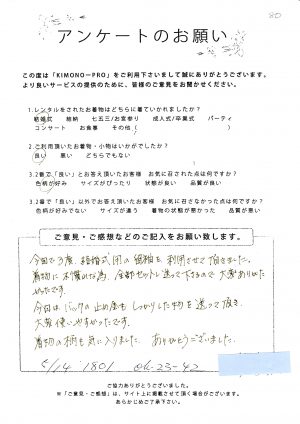 80
アンケートのお願い
この度は「KIMONO-PRO」をご利用下さいまして誠にありがとうございます。
より良いサービスの提供のために、皆様のご意見をお聞かせください。
1.レンタルをされたお着物はどちらに着ていかれましたか？
結婚式 結納 七五三/お宮参り 成人式/卒業式 パーティ
コンサート お食事 その他( )
2.ご利用頂いたお着物・小物はいかがでしたか？
良い 悪い どちらでもない
3.2番で「良い」とお答え頂いたお客様 お気に召された点は何ですか？
色柄が好み サイズがぴったり 状態が良い 品質が良い
3.2番で「良い」以外でお答え頂いたお客様 お気に召さなかった点は何ですか？
色柄が好みでない サイズが違う 着物の状態が悪かった 品質が悪い
ご意見・ご感想などのご記入をお願い致します。
今回で3度、結婚式用の留袖を利用させて頂きました。
着物に不慣れな為、全部セットして送って下さるので大変ありがた
かったです。
今回は、バックの止め金もしっかりした物を送って頂き、
大変使いやすかったです。
着物の柄も気に入りました。ありがとうございました。
5/14 1801 OK-23-42
ご協力ありがとうございました。
※「ご意見・ご感想」は、サイト上に掲載させて頂く場合がございます。
あらかじめご了承下さい。